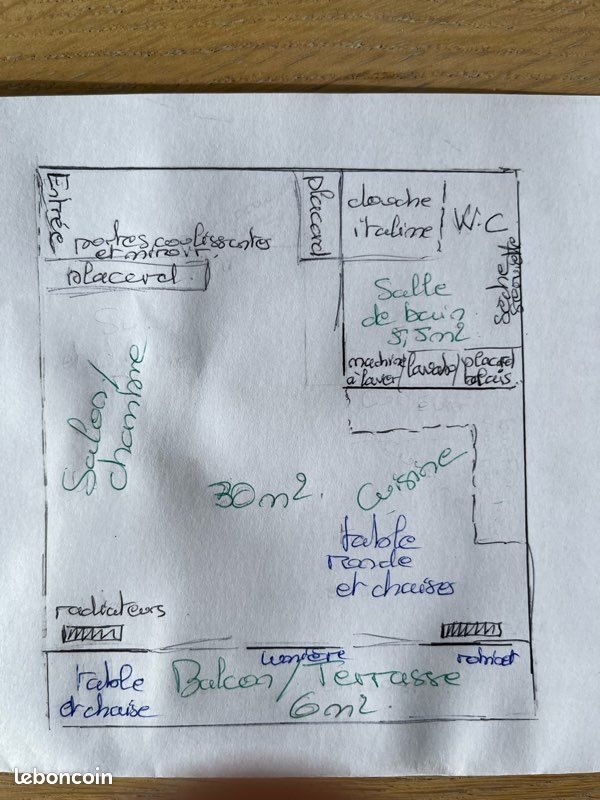 Entrée
portes coulissantes
et miroir.
placard
placard
douche
italine
W.C
étagères
Salle
de bain
5,5m2
machine
à laver/
lavabo/
placard
balais
Salon/
chambre
30m2.
Cuisine
table
ronde
et chaises
radiateurs
lumière
robinet
table
et chaise
Balcon/Terrasse
6m2.
leboncoin